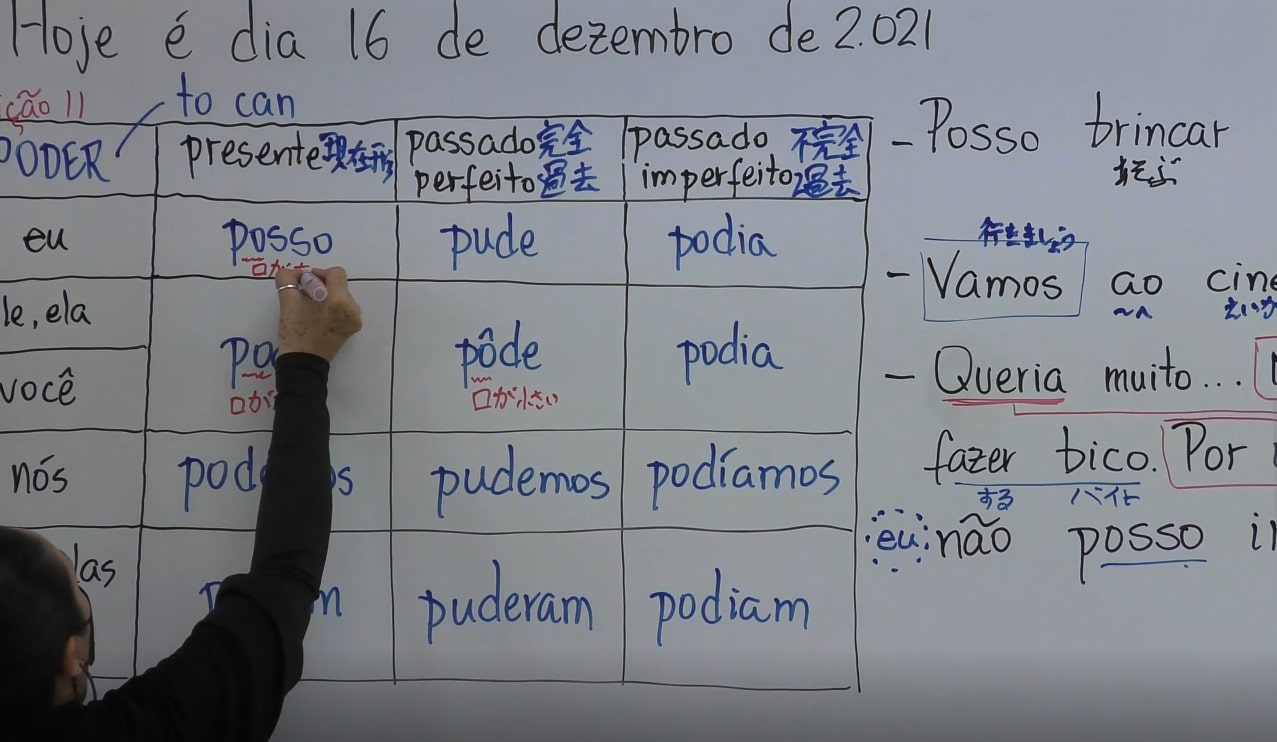 Hoje é dia 16 de dezembro de 2.021
ção 11
to can
PODER
presente 現在形
passado 完全
perfeito 過去
passado 不完全
imperfeito 過去
eu
posso
口が
pude
podia
le, ela
você
pôde
口が小さい
口が
podia
nós
pudemos
podíamos
las
puderam
podiam
- Posso brincar
あそぶ
行きましょう
- Vamos ao cine
～へ えいが
- Queria muito...
fazer bico. Por
する バイト
eu: não posso ir